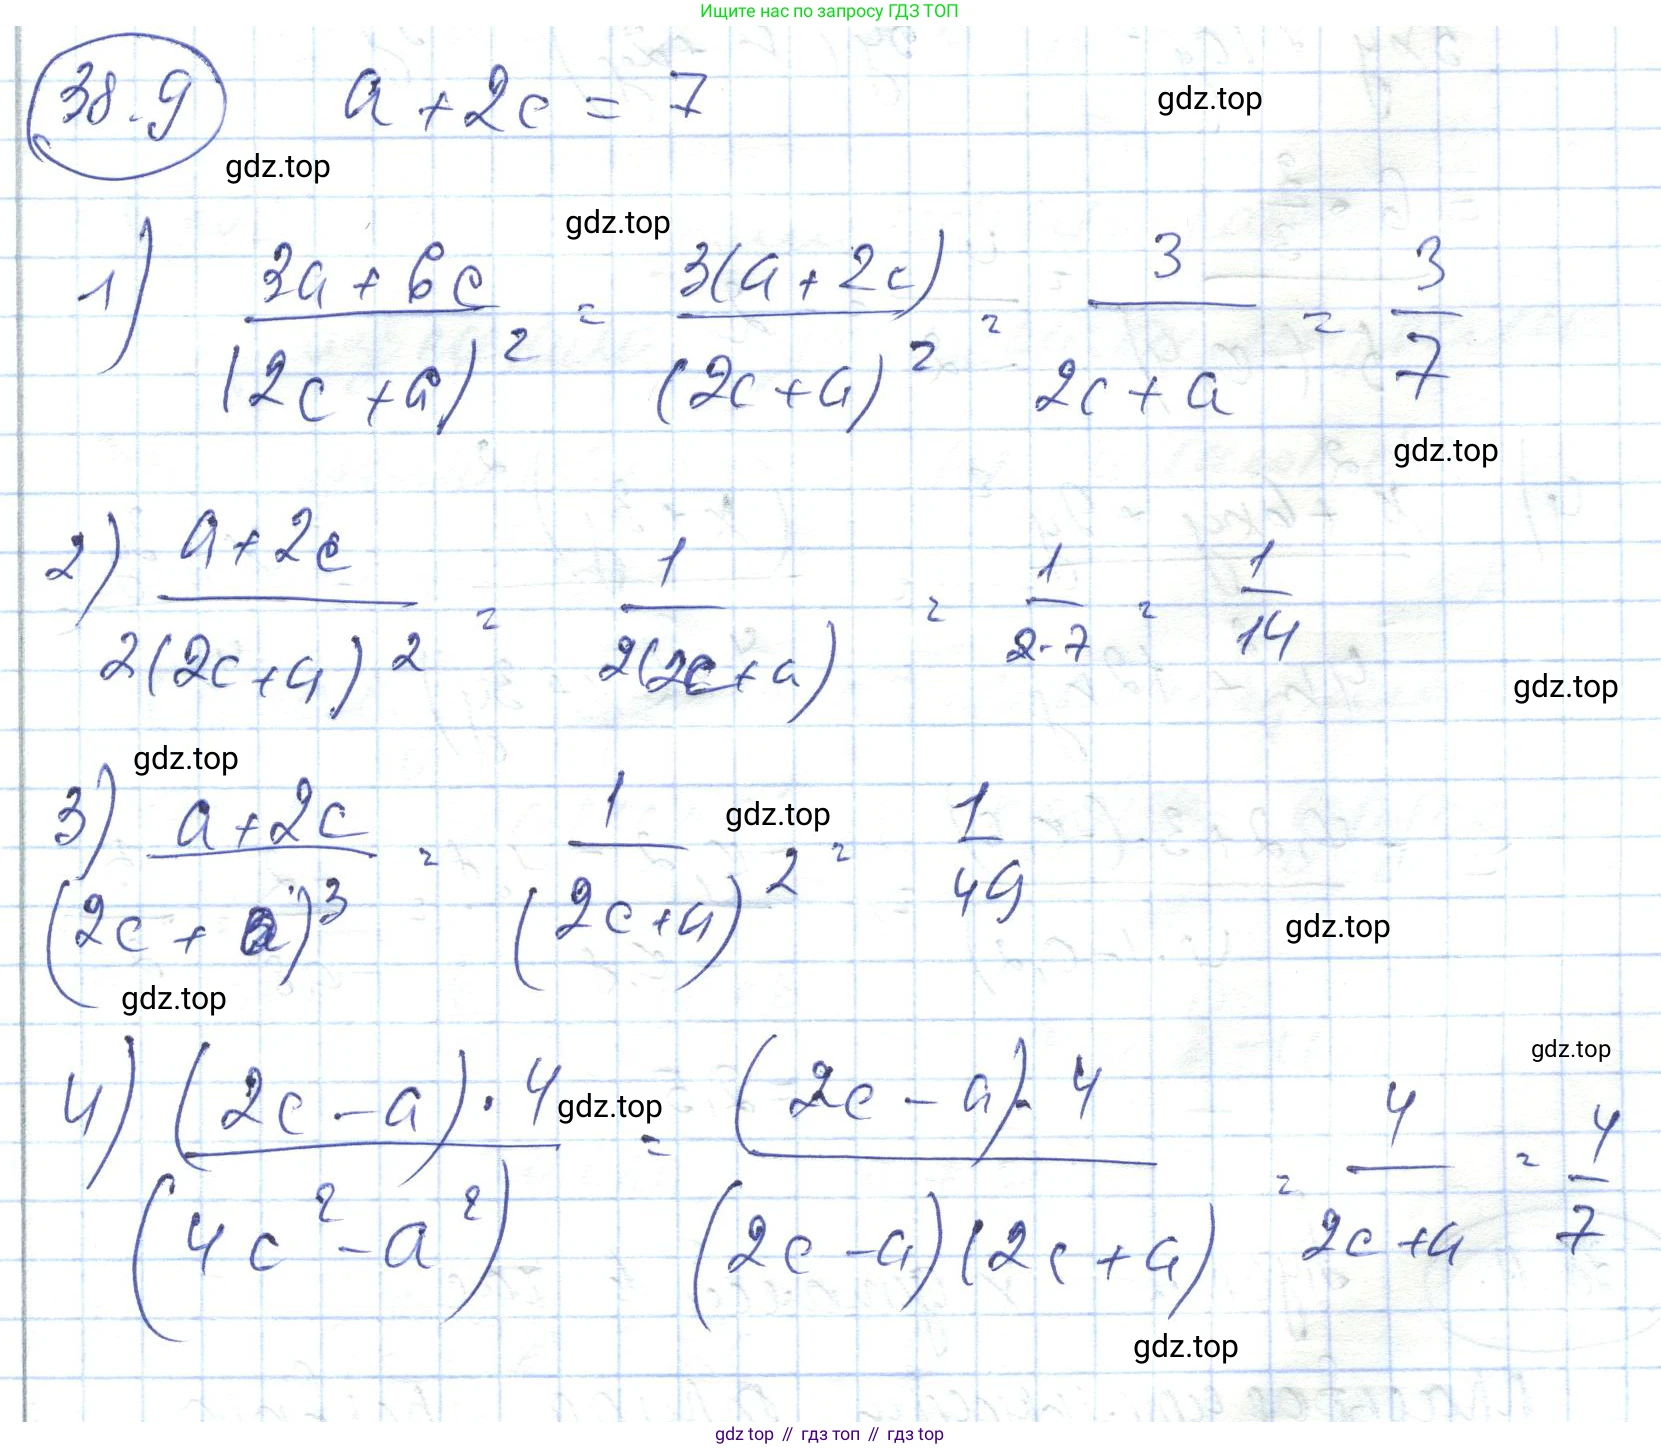 Ищите нас по запросу ГДЗ ТОП
38.9 a + 2c = 7
gdz.top
gdz.top
gdz.top
1) (3a + 6c)/(2c + a)² = 3(a + 2c)/(2c + a)² = 3/(2c + a) = 3/7
gdz.top
2) (a + 2c)/(2(2c + a)²) = 1/(2(2c + a)) = 1/(2·7) = 1/14
gdz.top
gdz.top
3) (a + 2c)/(2c + a)³ = 1/(2c + a)² = 1/49
gdz.top
gdz.top
gdz.top
gdz.top
4) ((2c - a) · 4)/(4c² - a²) = ((2c - a) · 4)/((2c - a)(2c + a)) = 4/(2c + a) = 4/7
gdz.top
gdz.top
gdz top // гдз топ // гдз top